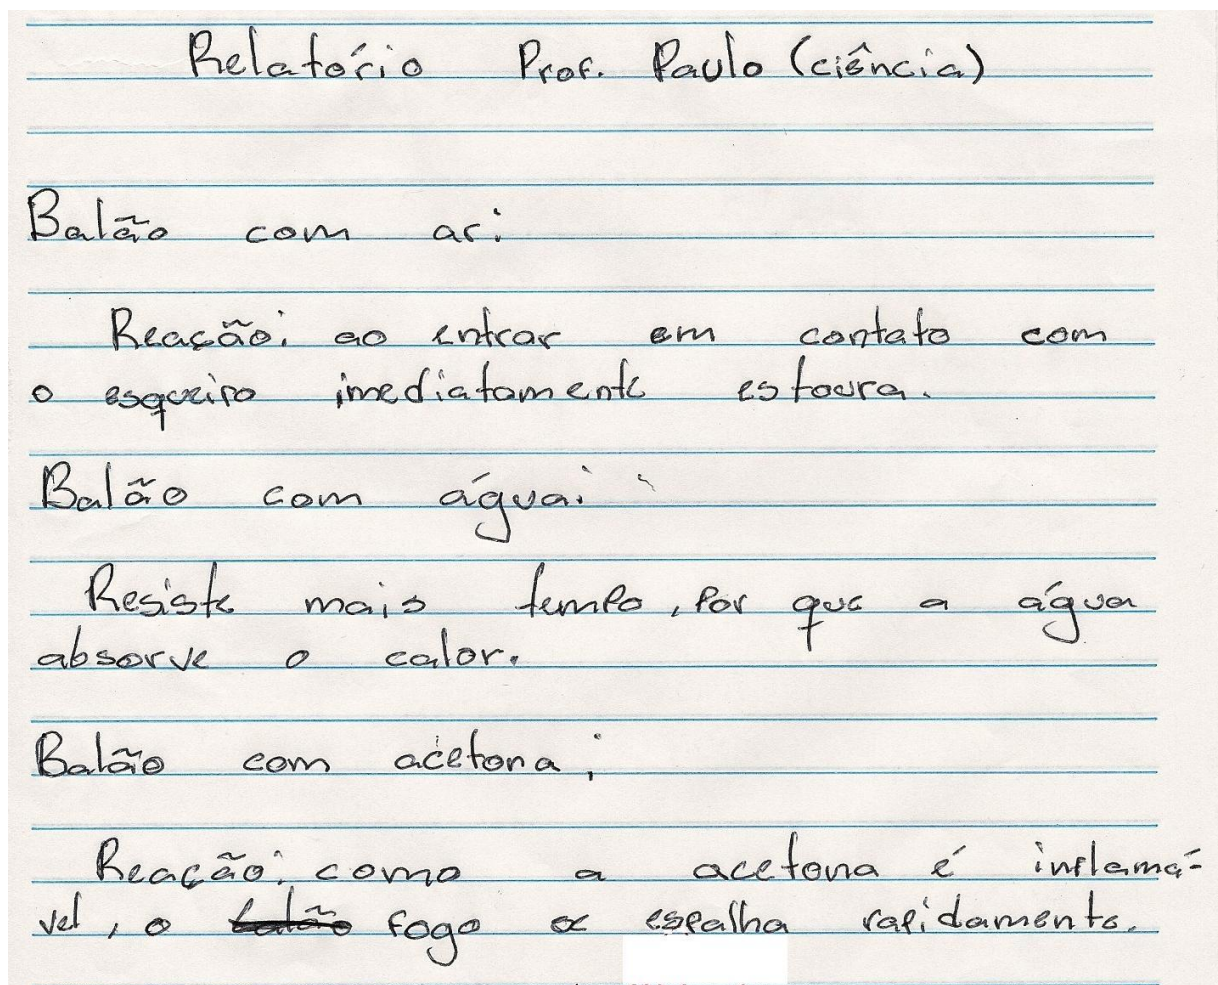 Relatório Prof. Paulo (ciência)
Balão com ar:
Reação: ao entrar em contato com
o esqueiro imediatamente estoura.
Balão com água:
Resiste mais tempo, por que a água
absorve o calor.
Balão com acetona:
Reação: como a acetona é inflamá-
vel, o balão fogo se espalha rapidamente.